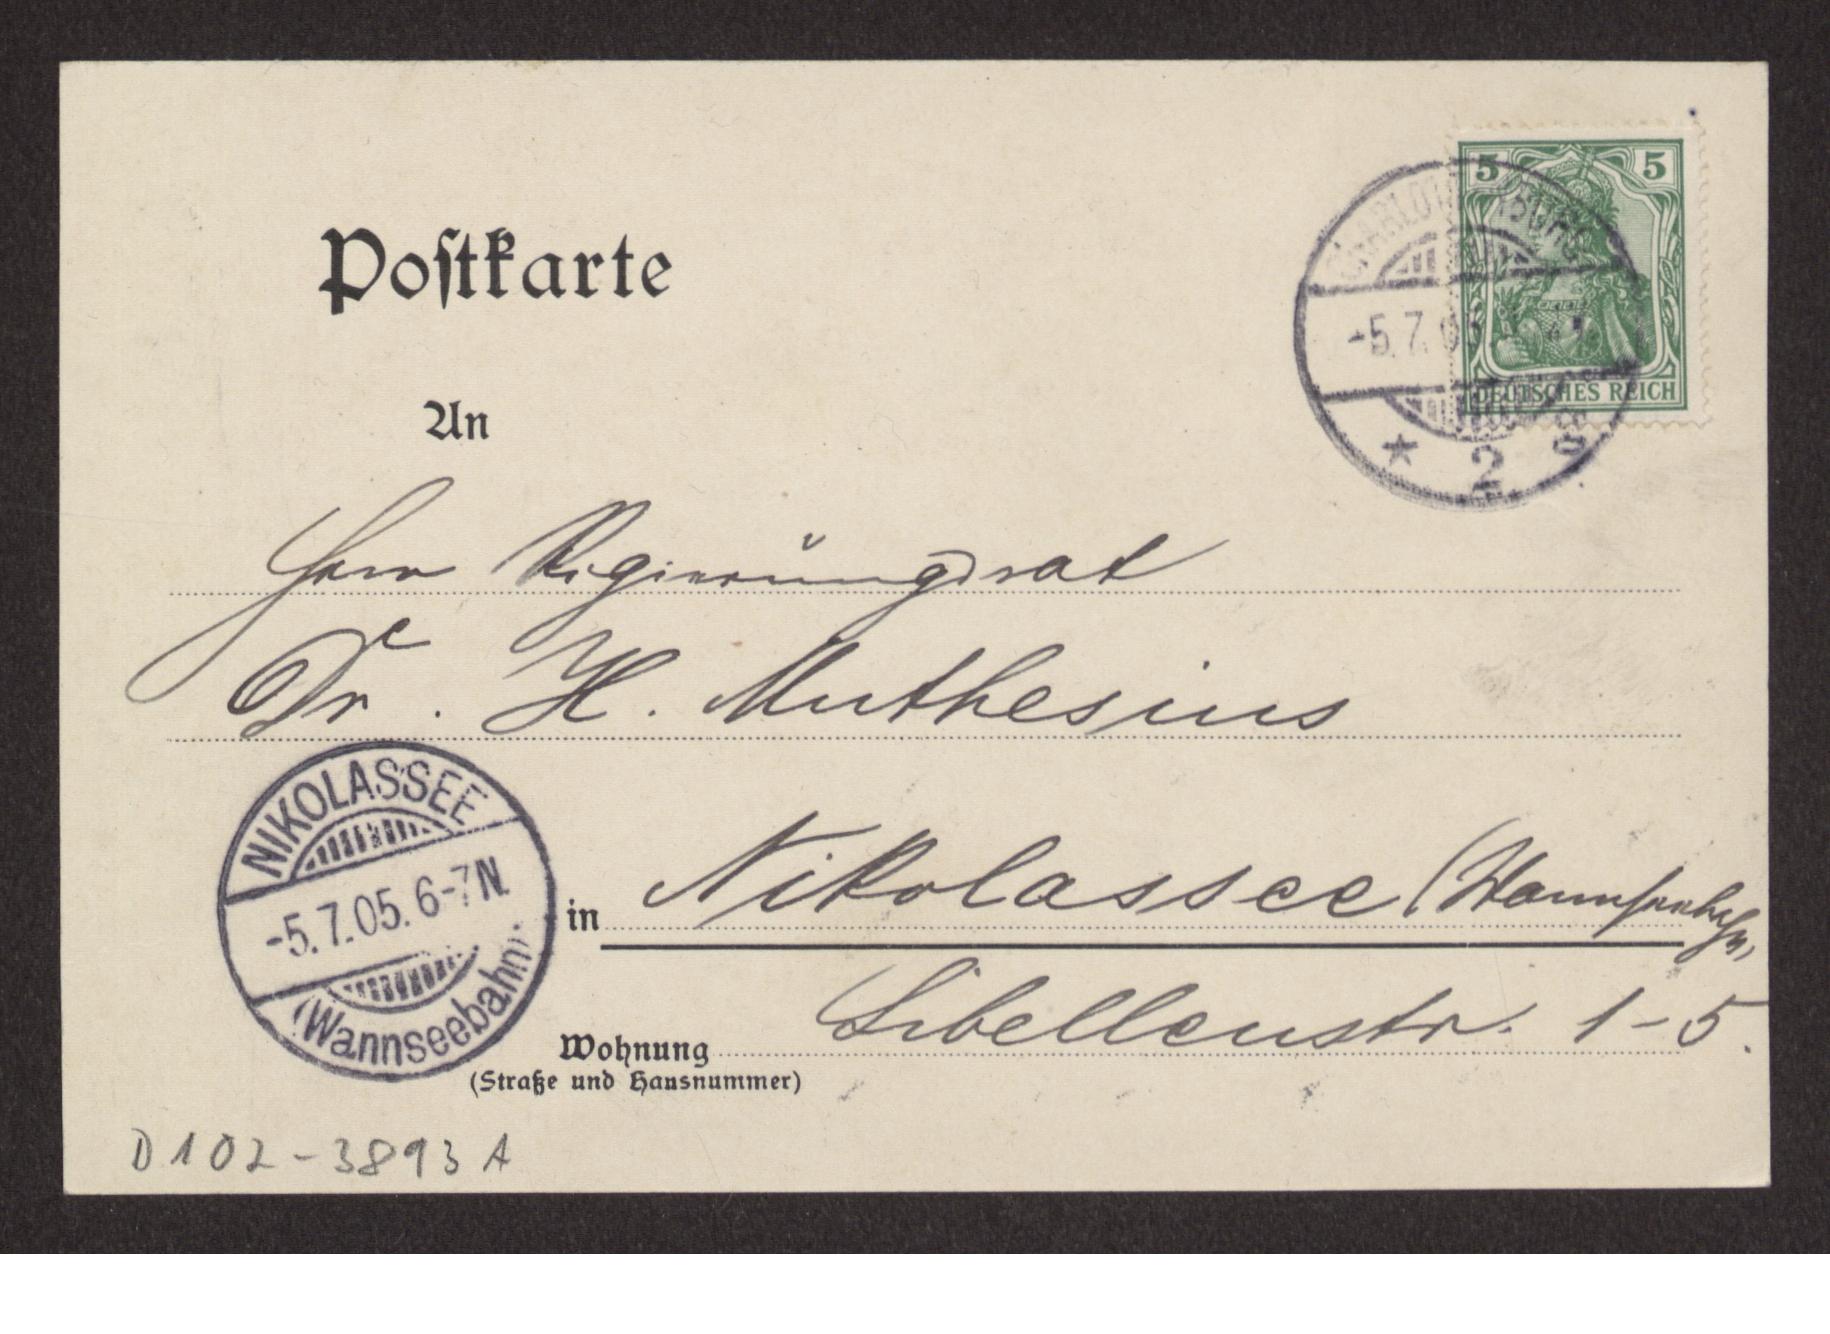 Postkarte
5 5
DEUTSCHES REICH
CHARLOTTENBURG
-5.7.05.
* 2 g
An
Herrn Regierungsrat
Dr. H. Muthesius
NIKOLASSEE
-5.7.05. 6-7N.
(Wannseebahn)
in Nikolassee (Wannseebahn)
Wohnung Libellenstr. 1-5.
(Straße und Hausnummer)
D102-3893A